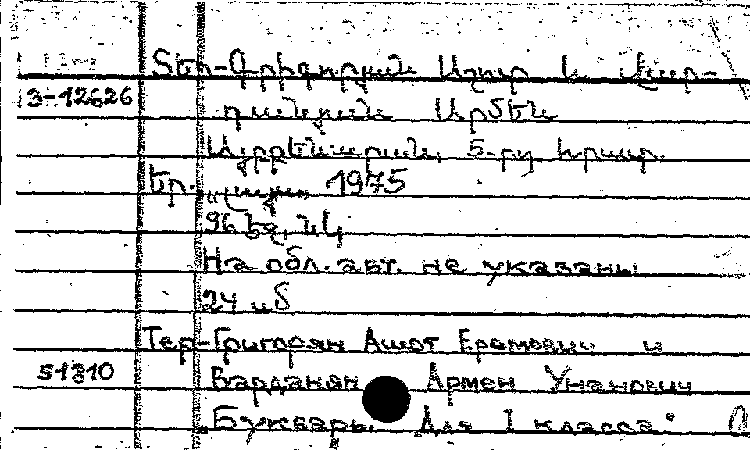 Տեր-Գրիգորյան Աշոտ և Վար-
3-12626
դանյան Արմեն
Այբբենարան. 5-րդ հրատ.
Եր. 1975
96 էջ, նկ
На обл. авт. не указаны
24 
Тер-Григорян Ашот Еремович и
51310
Варданян Армен Унанович
Букварь. Для I класса.